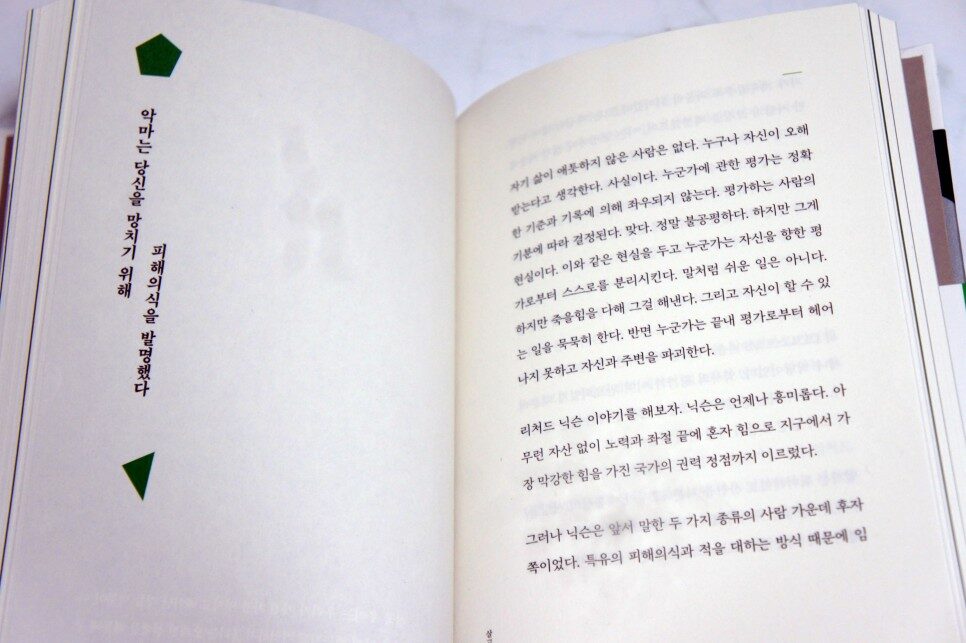 악마는 당신을 망치기 위해
피해의식을 발명했다
자기 삶이 애틋하지 않은 사람은 없다. 누구나 자신이 오해
받는다고 생각한다. 사실이다. 누군가에 관한 평가는 정확
한 기준과 기록에 의해 좌우되지 않는다. 평가하는 사람의
기분에 따라 결정된다. 맞다. 정말 불공평하다. 하지만 그게
현실이다. 이와 같은 현실을 두고 누군가는 자신을 향한 평
가로부터 스스로를 분리시킨다. 말처럼 쉬운 일은 아니다.
하지만 죽을힘을 다해 그걸 해낸다. 그리고 자신이 할 수 있
는 일을 묵묵히 한다. 반면 누군가는 끝내 평가로부터 헤어
나지 못하고 자신과 주변을 파괴한다.
리처드 닉슨 이야기를 해보자. 닉슨은 언제나 흥미롭다. 아
무런 자산 없이 노력과 좌절 끝에 혼자 힘으로 지구에서 가
장 막강한 힘을 가진 국가의 권력 정점까지 이르렀다.
그러나 닉슨은 앞서 말한 두 가지 종류의 사람 가운데 후자
쪽이었다. 특유의 피해의식과 적을 대하는 방식 때문에 임